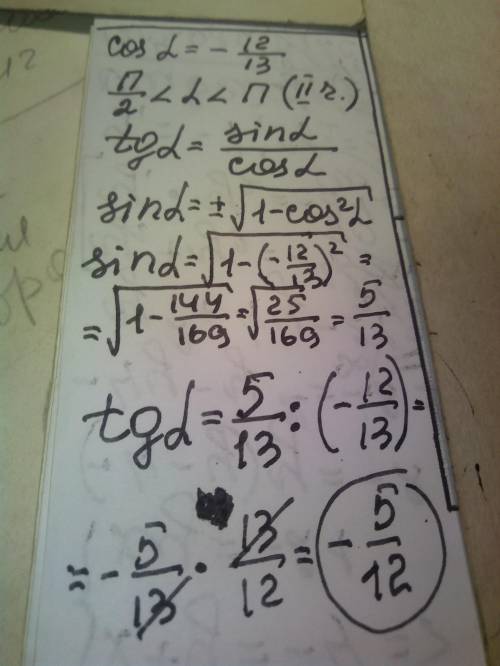 cos α = - 12/13
π/2 < α < π (II ч.)
tg α = sin α / cos α
sin α = ± √(1 - cos² α)
sin α = √(1 - (- 12/13)²) =
= √(1 - 144/169) = √(25/169) = 5/13
tg α = 5/13 : (- 12/13) =
= - 5/13 · 13/12 = - 5/12